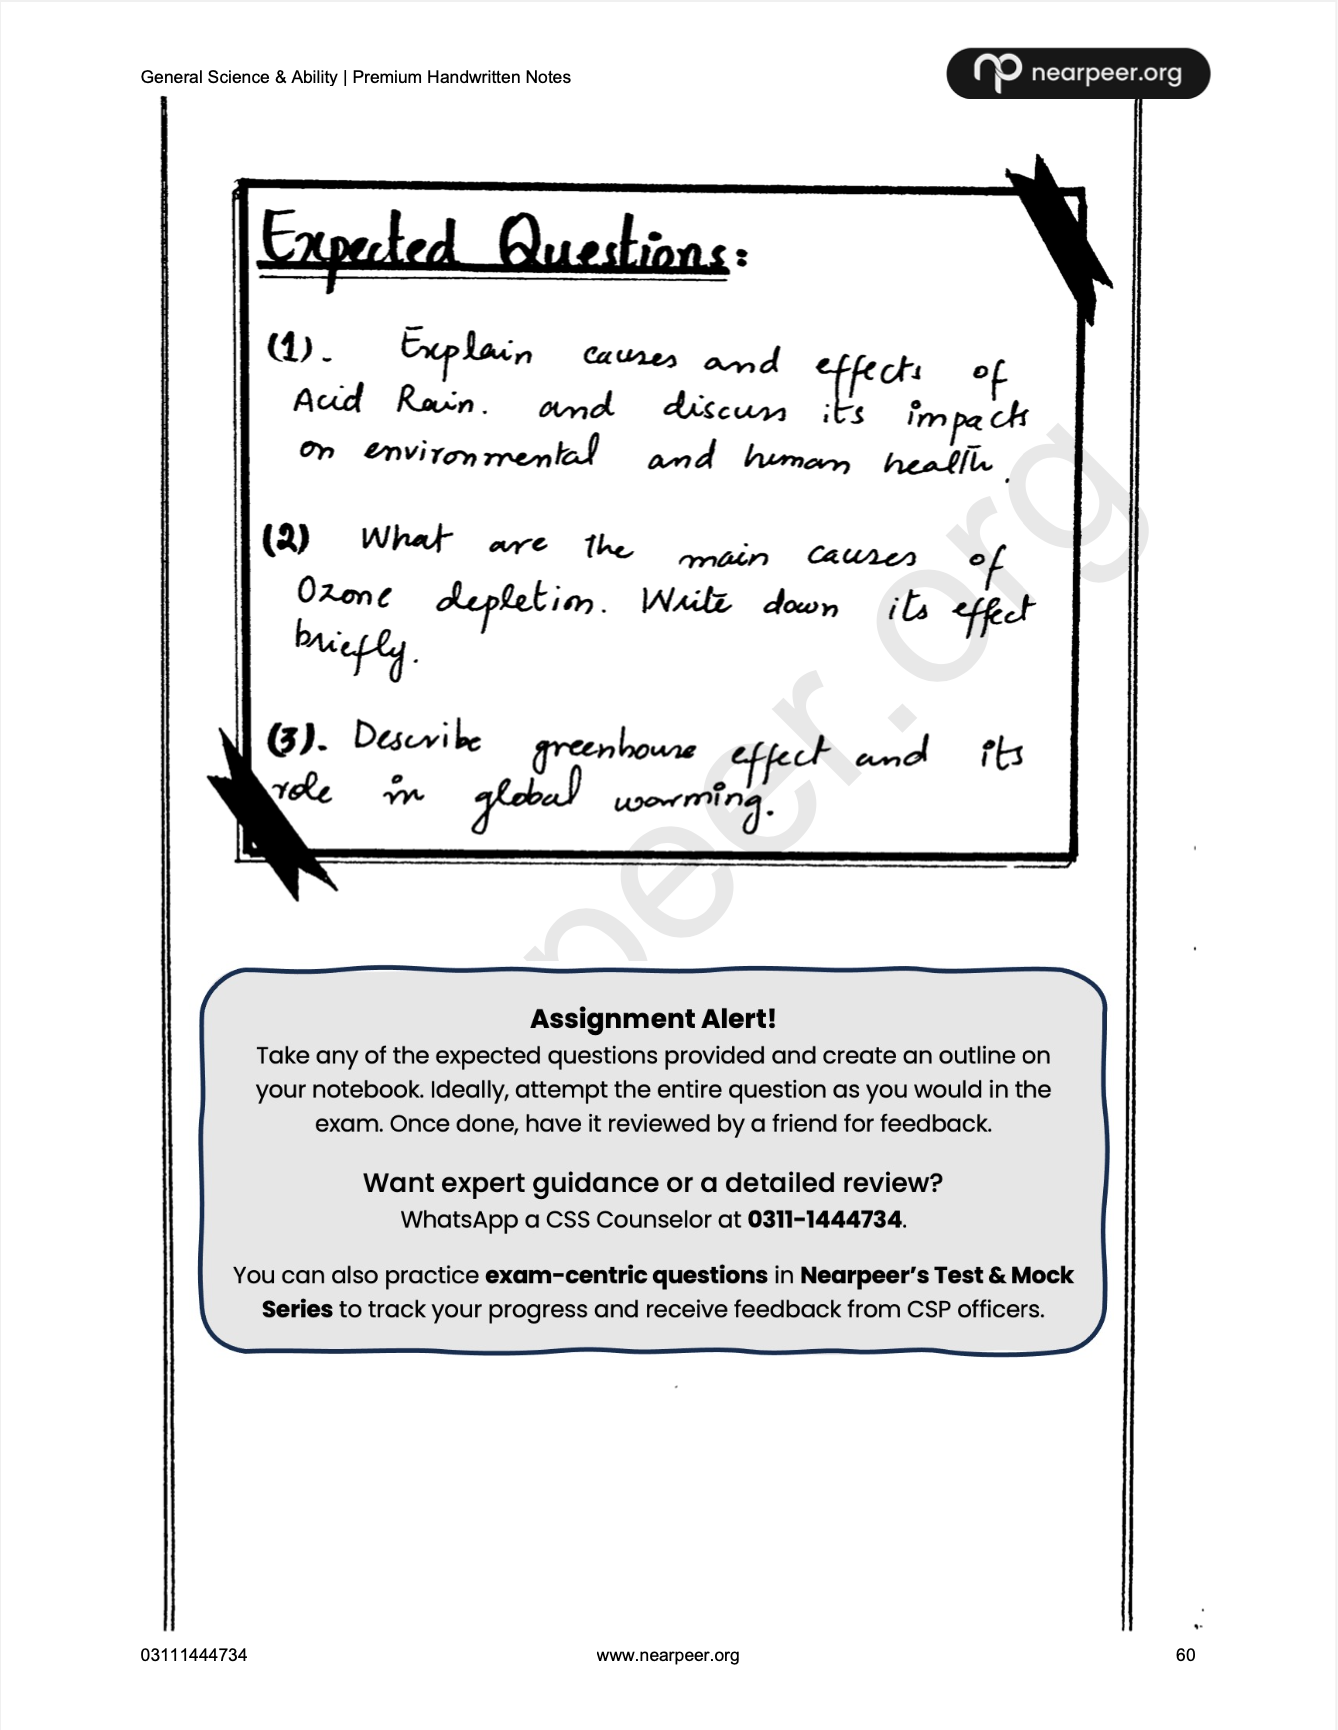 General Science & Ability | Premium Handwritten Notes
nearpeer.org
Expected Questions:
(1). Explain causes and effects of
Acid Rain. and discuss its impacts
on environmental and human health.
(2) What are the main causes of
Ozone depletion. Write down its effect
briefly.
(3). Describe greenhouse effect and its
role in global warming.
peer.org
Assignment Alert!
Take any of the expected questions provided and create an outline on
your notebook. Ideally, attempt the entire question as you would in the
exam. Once done, have it reviewed by a friend for feedback.
Want expert guidance or a detailed review?
WhatsApp a CSS Counselor at 0311-1444734.
You can also practice exam-centric questions in Nearpeer’s Test & Mock
Series to track your progress and receive feedback from CSP officers.
03111444734
www.nearpeer.org
60